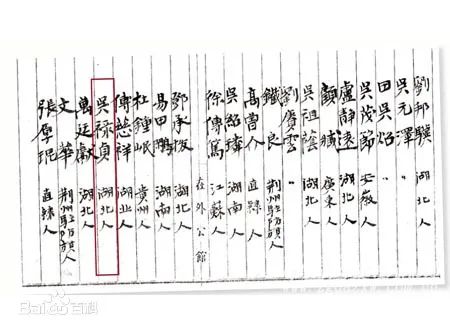 劉邦驥 湖北人
吳元澤 〃
田吳炤 〃
吳茂節 安徽人
盧靜遠 湖北人
顧臧 廣東人
吳祖蔭 湖北人
劉賡雲 〃
鐵良 荊州駐防旗人
高曾介 直隸人
吳紹璘 湖南人
徐傳篤 江蘇人
在外公館
鄧承拔 湖北人
易甲鵬 湖南人
杜鍾岷 貴州人
傅慈祥 湖北人
吳祿貞 湖北人
萬廷獻 湖北人
文華 荊州駐防旗人
張厚琨 直隸人
Baidu百科